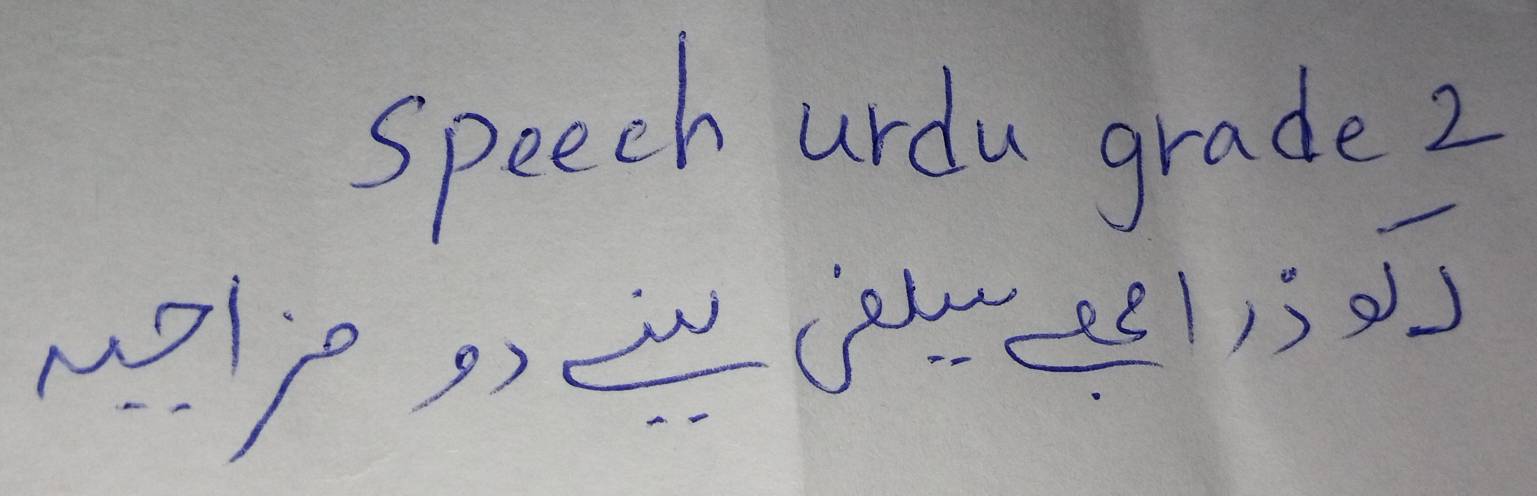 Speech urdu grade 2
رکو ذرا مجھے سیلفی لینے دو مزاحیہ